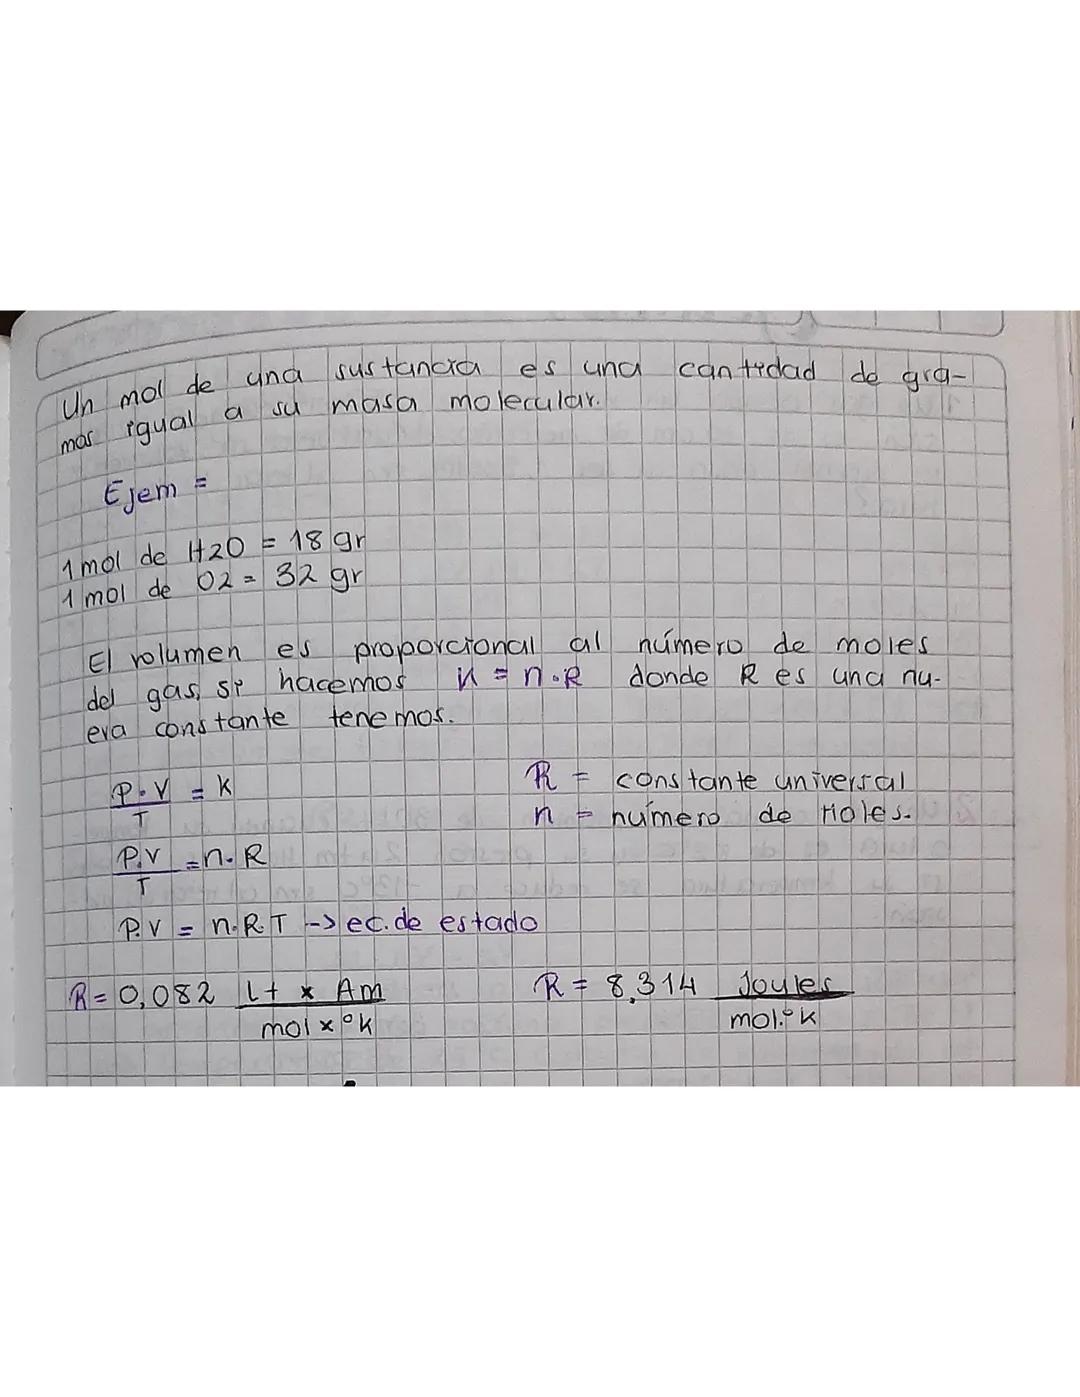 Un mol de una sustancia es una cantidad de gra-
mos igual a su masa molecular.
Ejem =
1 mol de H2O = 18 gr
1 mol de O2 = 32 gr
El volumen es proporcional al número de moles
del gas, si hacemos K = n.R donde R es una nu-
eva constante tenemos.
P.V / T = K
R = constante universal
n = número de Moles.
P.V / T = n.R
P.V = n.R.T -> ec.de estado
R = 0,082 Lt x Am / mol x °K
R = 8,314 Joules / mol.°K